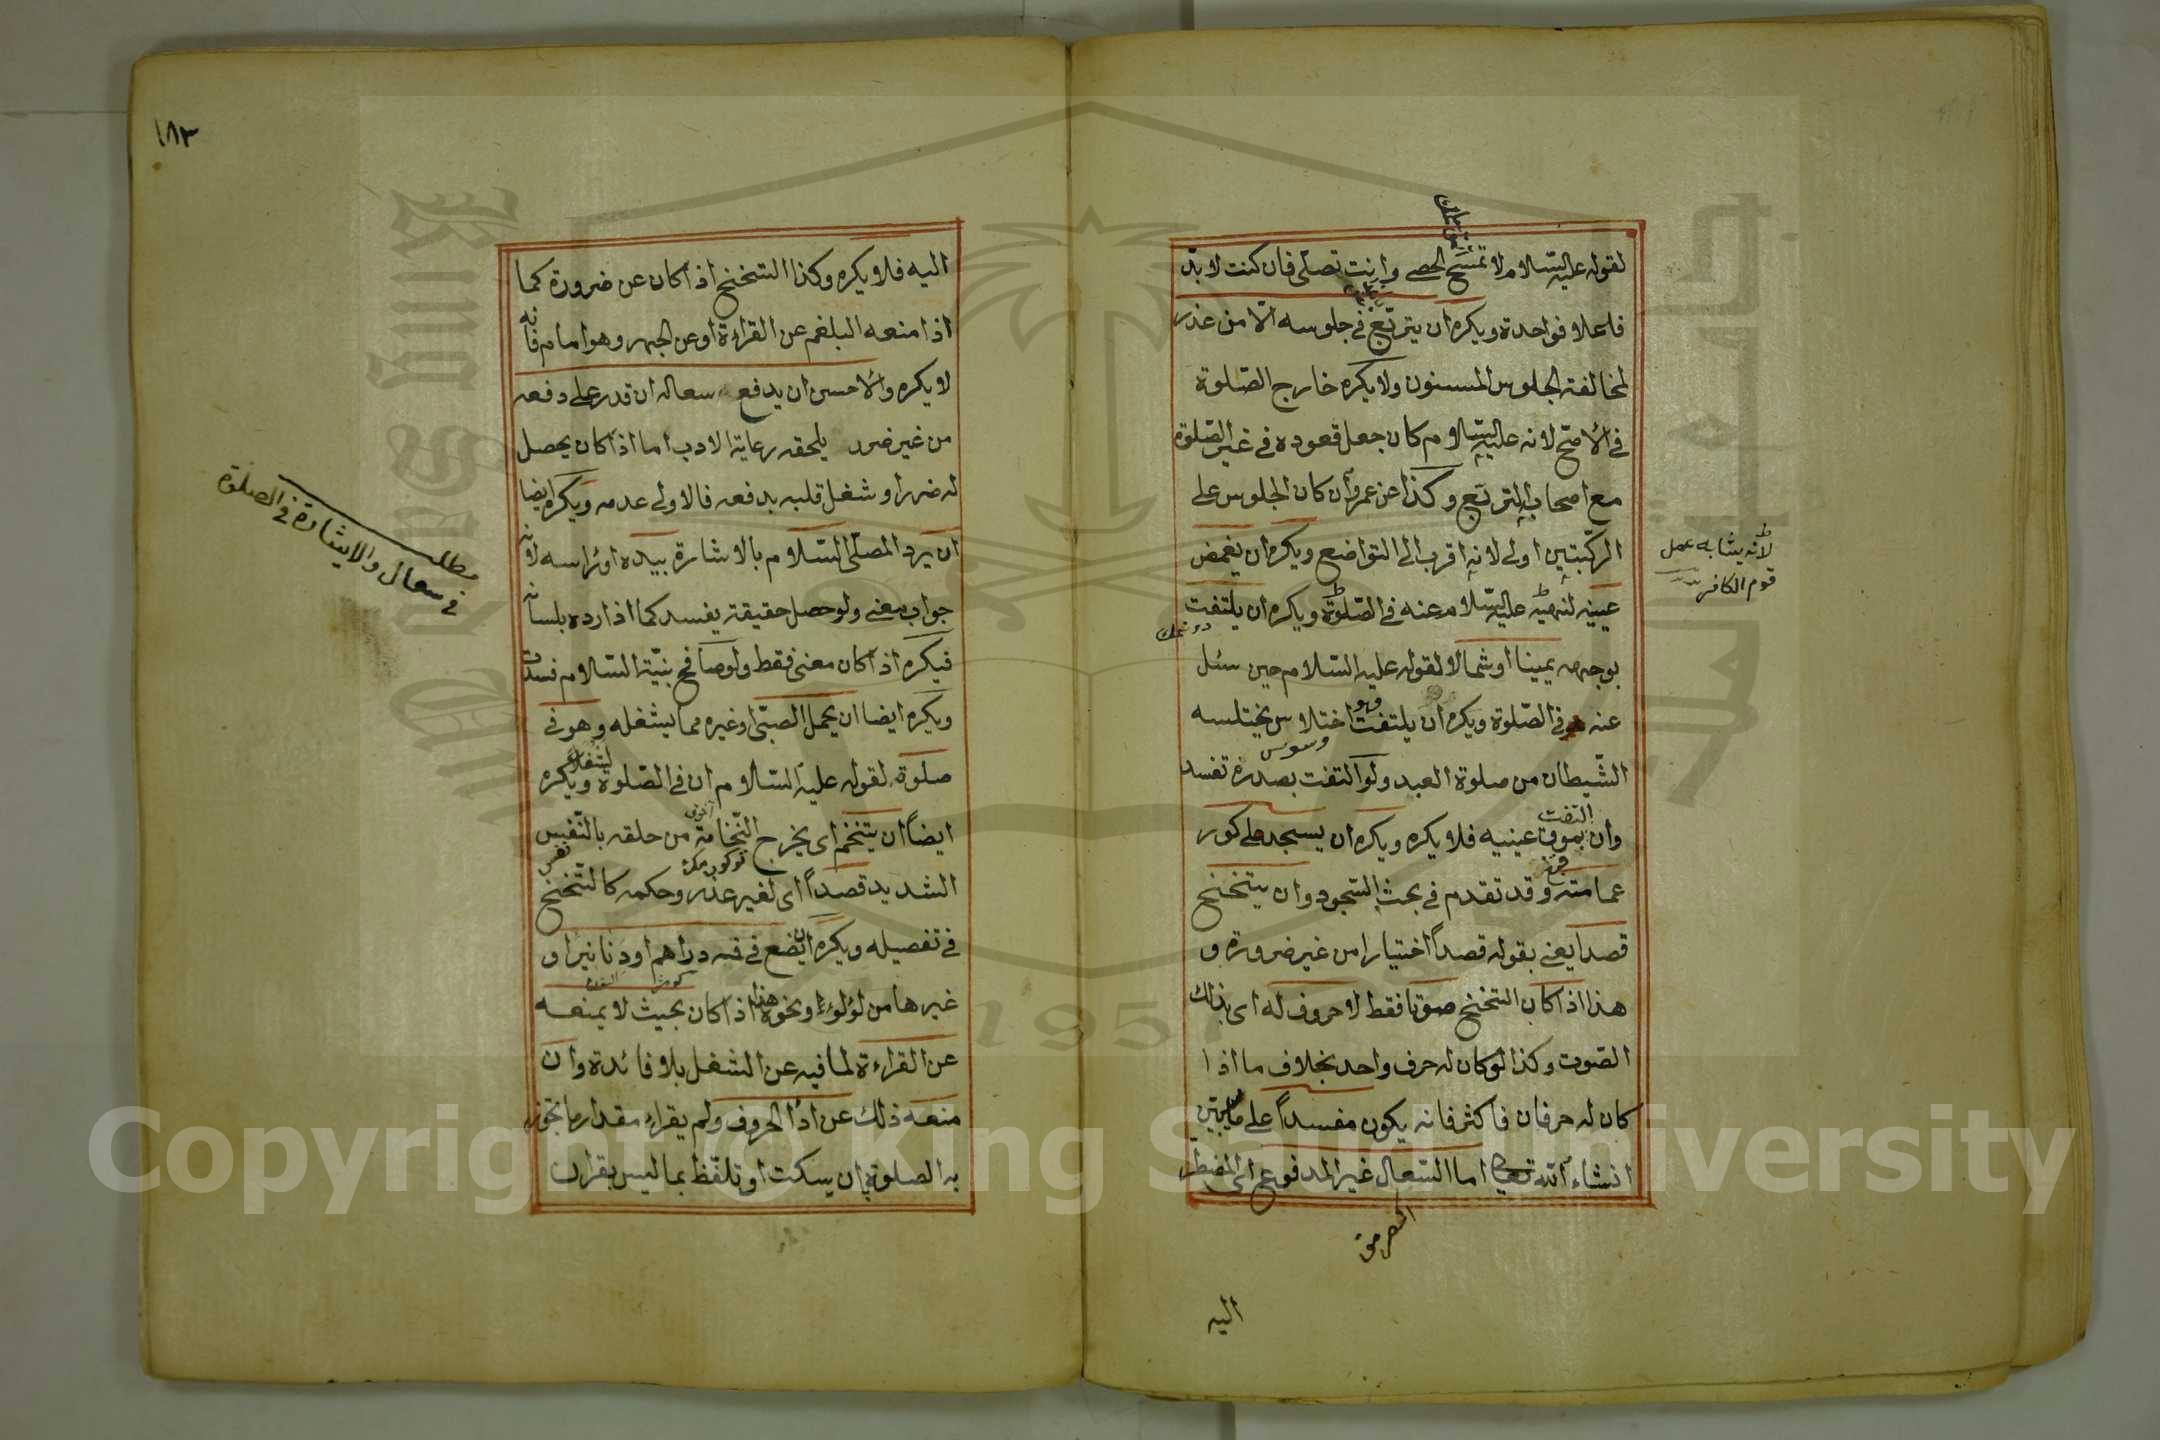 لقوله عليه السلام لا تمسح الحصى وانت تصلى فان كنت لا بدّ
فاعلا فواحدة ويكره ان يتربّع فى جلوسه الّا من عذر
لمخالفته الجلوس المسنون ولا يكره خارج الصّلوة
فى الاصحّ لانه عليه السّلام كان جعل قعوده فى غير الصّلوة
مع اصحابه التربّع وكذا عن عمر وان كان الجلوس على
الركبتين اولى لانه اقرب الى التواضع ويكره ان يغمض
عينيه لنهيّه عليه السّلام عنه فى الصّلوة ويكره ان يلتفت
بوجهه يمينا او شمالا لقوله عليه السّلام حين سئل
عنه فى الصّلوة ويكره ان يلتفت وهو اختلاس يختلسه
الشّيطان من صلوة العبد ولو التفت بصدره تفسد
وان التفت بموق عينيه فلا يكره ويكره ان يسجد على كور
عمامته وقد تقدم فى بحث السّجود وان يتنحنح
قصدا يعنى بقوله قصداً اختيارا من غير ضرورة و
هذا اذا كان التنحنح صوتا فقط لا حروف له اى بذلك
الصّوت وكذا لو كان له حرف واحد بخلاف ما اذا
كان له حرفان فاكثر فانه يكون مفسداً على ما يبيّن
انشاء الله تعالى اما السّعال غير المدفوع اى المضطر
اليه
لانّه يشابه عمل
قوم الكافر
١٨٣
اليه فلا يكره وكذا التنحنح اذا كان عن ضرورة كما
اذا منعه البلغم عن القراءة او عن الجهر وهو امام فانه
لا يكره والاحسن ان يدفع سعاله ان قدر على دفعه
من غير ضرر يلحقه رعاية الادب اما اذا كان يحصل
له ضررا وشغل قلبه بدفعه فالاولى عدمه ويكره ايضا
ان يرد المصلّى السّلام بالاشارة بيده او براسه لانه
جواب معنى ولو حصل حقيقة يفسد كما اذا رده بلسانه
فيكره اذا كان معنى فقط ولو صافح بنيّة السّلام فسدت
ويكره ايضا ان يحمل الصبّى او غيره مما يشغله وهو فى
صلوة لقوله عليه السّلام ان فى الصّلوة لشغلا ويكره
ايضاً ان يتنخم اى يخرج النّخامة من حلقه بالنّفس
الشديد قصداً اى لغير عذر وحكمه كالتّنحنح
فى تفصيله ويكره ان يضع فى فيه دراهم او دنانير او
غيرها من لؤلوء او نحوه هذا اذا كان بحيث لا يمنعه
عن القراءة لما فيه عن الشغل بلا فائدة وان
منعه ذلك عن اداء الحروف ولم يقراء مقدار ما تجوز
به الصلوة بان يسكت او تلفّظ بما ليس بقران
مطلب
فى سعال والايشارة فى الصلوة
Copyright © King Saud University
195